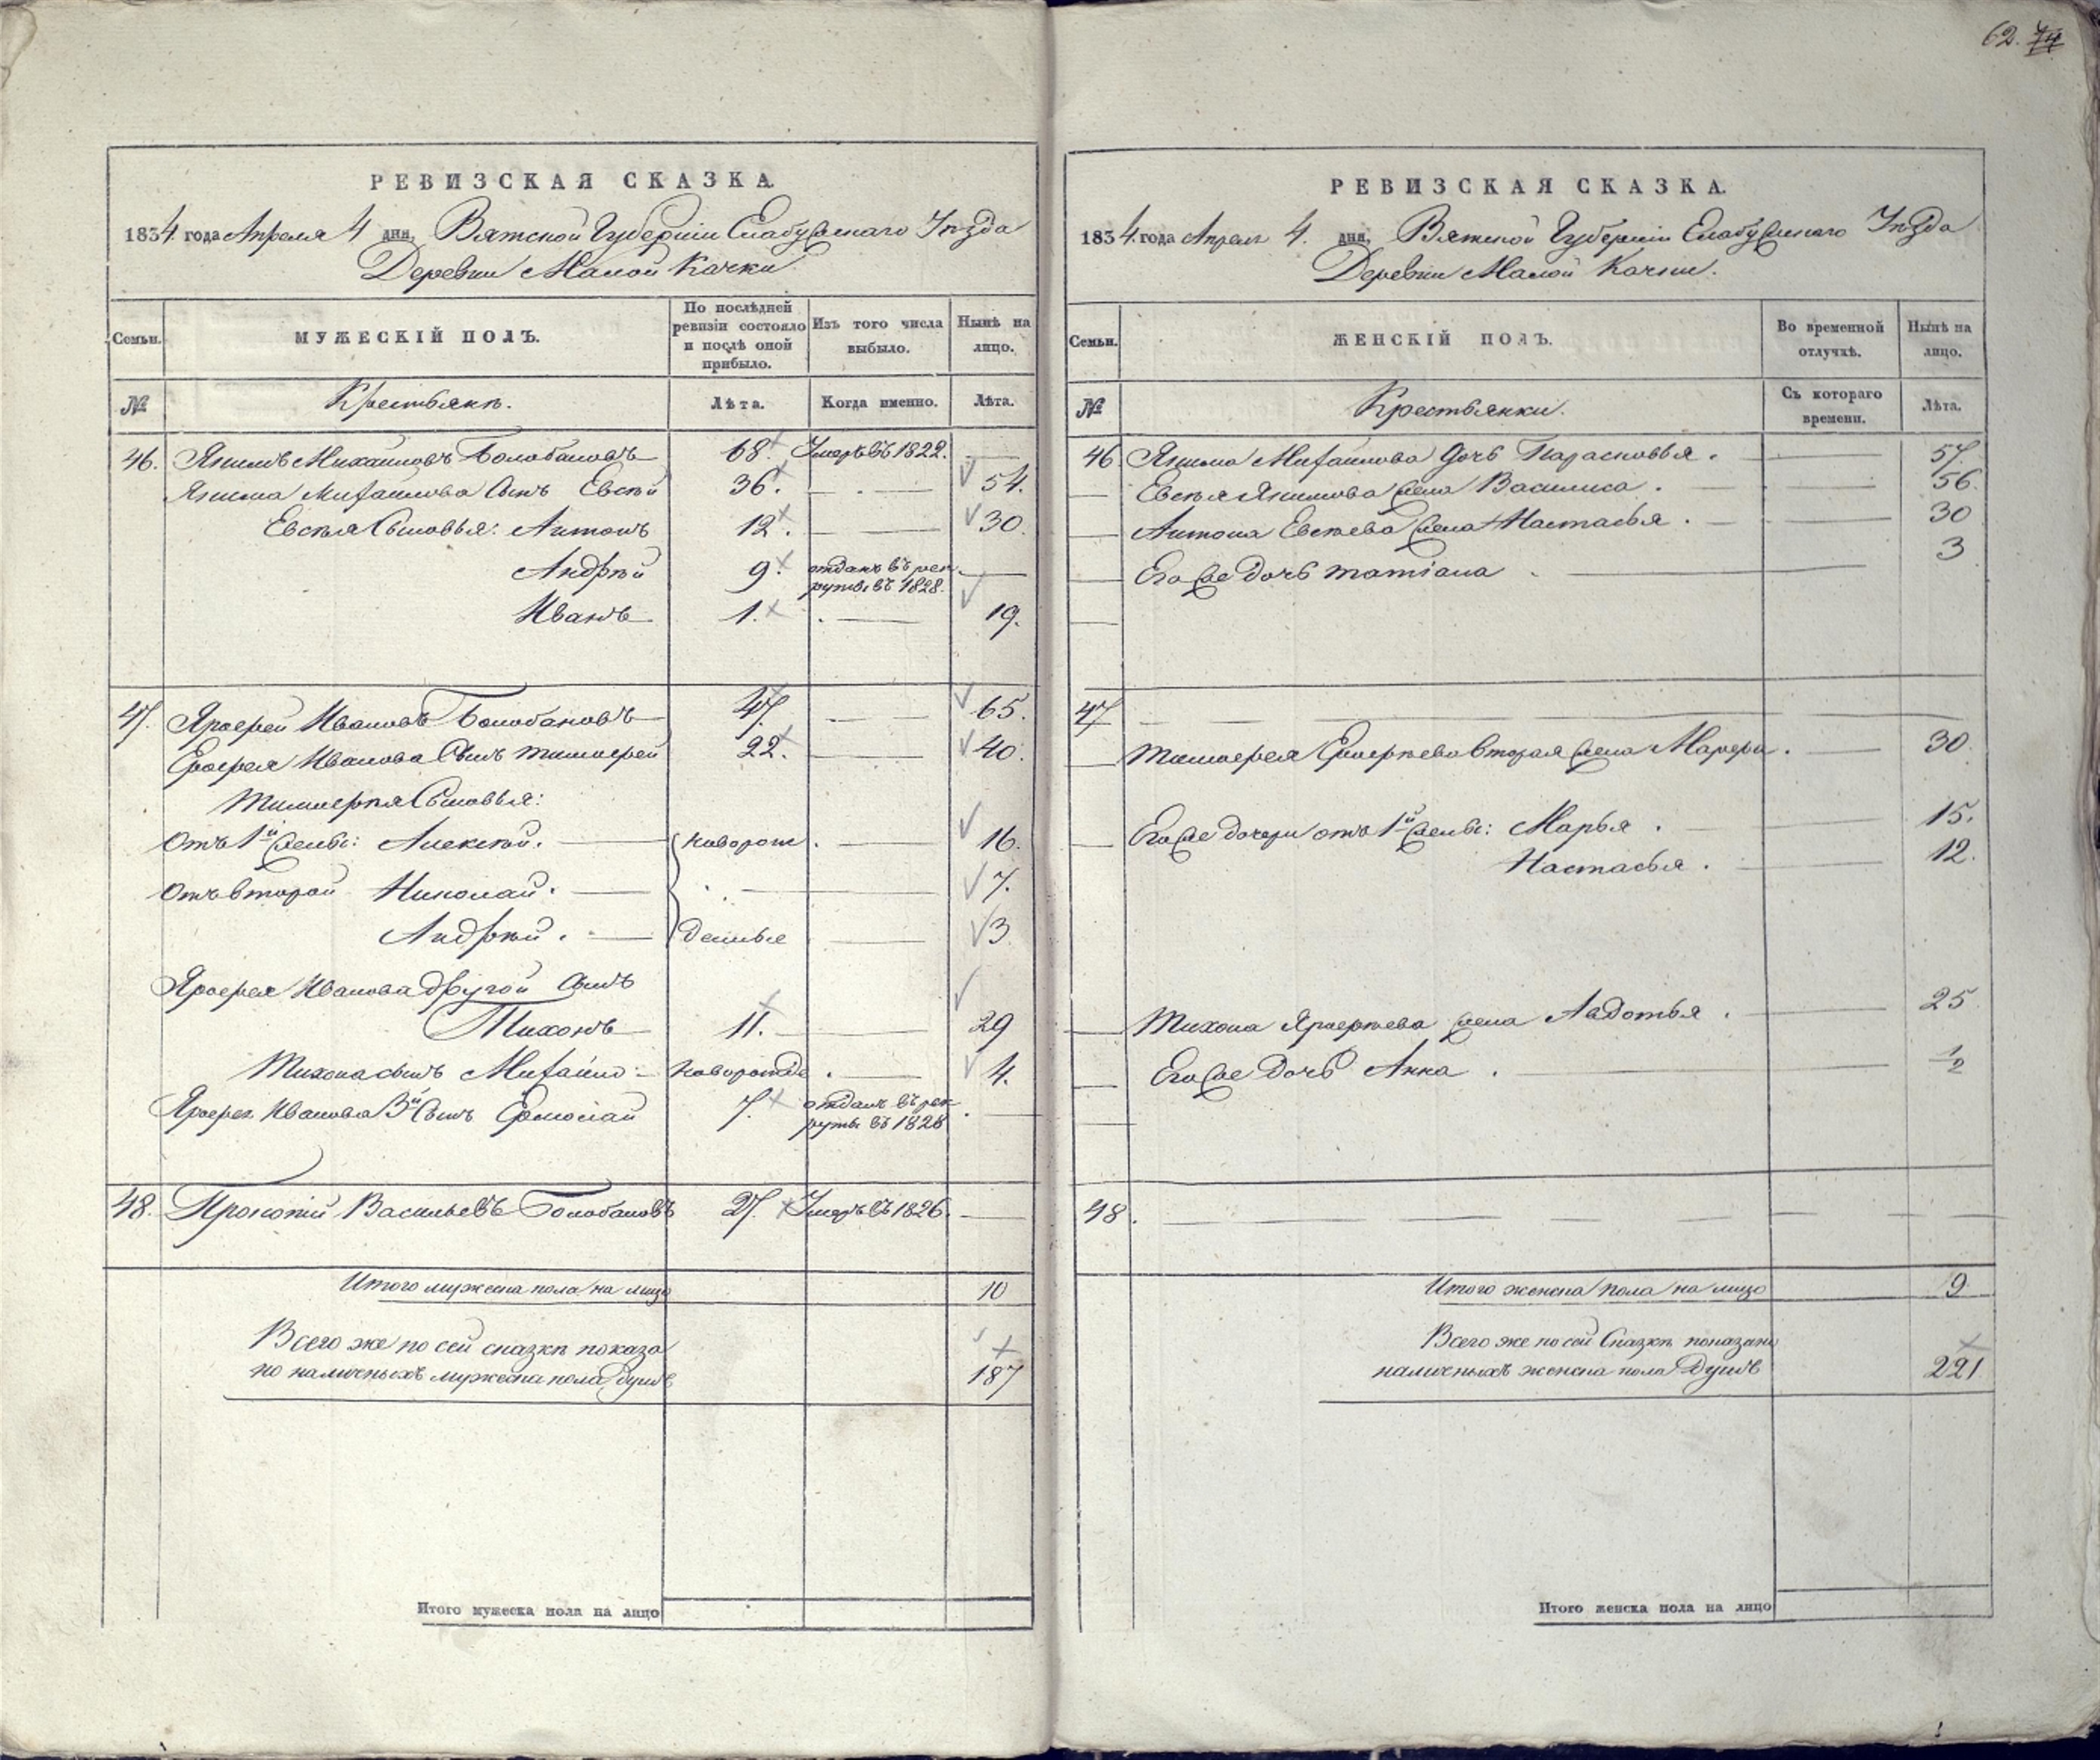 62. 74
РЕВИЗСКАЯ СКАЗКА
1834 года Апреля 4 дня, Вятской Губерніи Елабужскаго Уѣзда
Деревни Малой Качки
Семьи.
МУЖЕСКІЙ ПОЛЪ.
По послѣдней ревизіи состояло и послѣ оной прибыло.
Изъ того числа выбыло.
Нынѣ на лицо.
№
Крестьянъ.
Лѣта.
Когда именно.
Лѣта.
46. Якимъ Михайловъ Болобановъ 68. Умеръ въ 1822.
Якима Михайлова Сынъ Евсѣй 36. 54.
Евсѣя Сыновья: Антонъ 12. 30.
Андрѣй 9. отданъ въ рекруты въ 1828.
Иванъ 1. 19.
47. Ярофей Ивановъ Болобановъ 47. 65.
Ерофея Иванова Сынъ Тимофей 22. 40.
Тимофѣя Сыновья:
Отъ 1й Жены: Алексѣй. новорож 16.
Отъ второй Николай. 7.
Андрѣй. денные 3
Ярофея Иванова другой сынъ
Тихонъ 11. 29
Тихона сынъ Михайло новорожде 4.
Ярофея Иванова 3й Сынъ Ермолай 7. отданъ въ рекруты въ 1828
48. Прокопій Васильевъ Болобановъ 27. Умеръ въ 1826.
Итого мужеска пола на лицо 10
Всего же по сей сказкѣ показано наличныхъ мужеска пола душъ 187
Итого мужеска пола на лицо
РЕВИЗСКАЯ СКАЗКА.
1834 года Апреля 4. дня, Вятской Губерніи Елабужскаго Уѣзда
Деревни Малой Качки.
Семьи.
ЖЕНСКІЙ ПОЛЪ.
Во временной отлучкѣ.
Нынѣ на лицо.
№
Крестьянки.
Съ котораго времени.
Лѣта.
46 Якима Михайлова дочь Парасковья. 57.
Евсѣя Якимова жена Василиса. 56.
Антона Евсѣева жена Настасья. 30
Его же дочь Татіана. 3
47
Тимофея Ерофѣева вторая жена Марфа. 30.
Его же дочери отъ 1й Жены: Марья. 15.
Настасья. 12.
Тихона Ярофѣева жена Авдотья. 25
Его же дочь Анна. 1/2
48.
Итого женска пола на лицо 9
Всего же по сей Сказкѣ показано
наличныхъ женска пола душъ 221
Итого женска пола на лицо